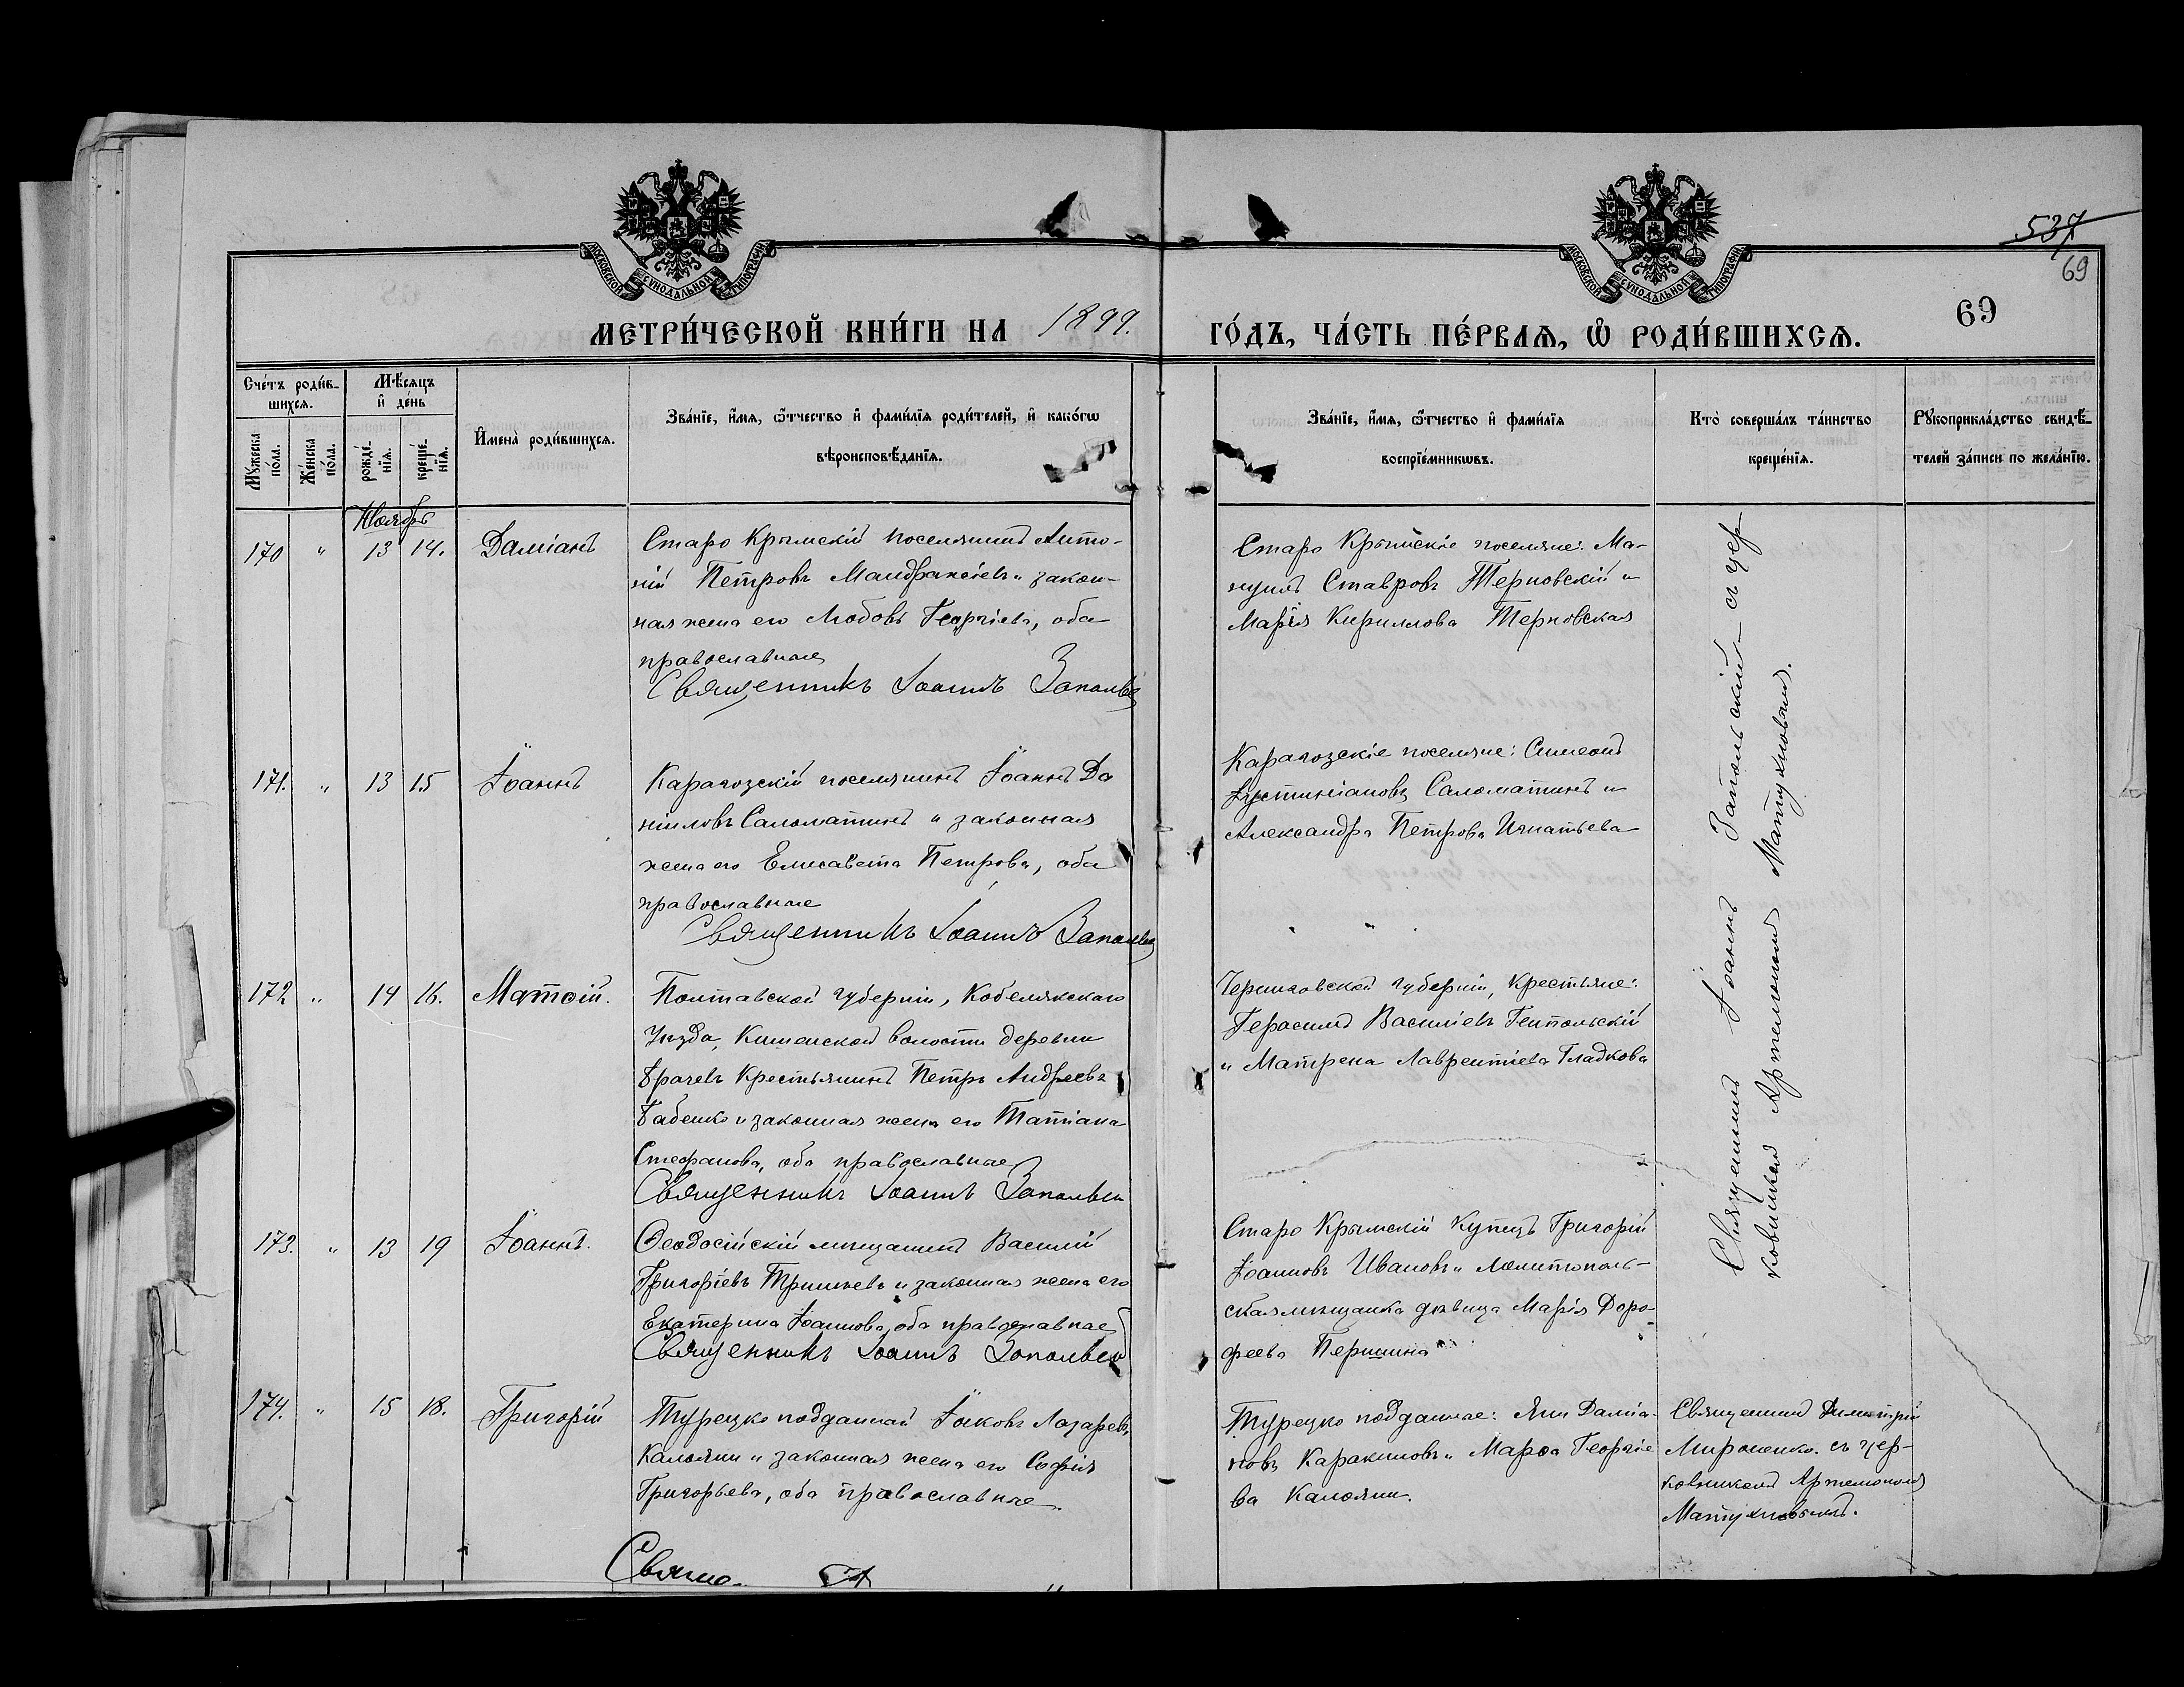 МОСКОВСКОЙ СѴНОДАЛЬНОЙ ТИПОГРАФІИ
МОСКОВСКОЙ СѴНОДАЛЬНОЙ ТИПОГРАФІИ
537
69
69
МЕТРИ́ЧЕСКОЙ КНИ́ГИ НА 1899. ГО́ДЪ, ЧА́СТЬ ПЕ́РВАѦ, Ѡ҆ РОДИ́ВШИХСѦ.
Сче́тъ роди́в-
шихсѧ.
Мꙋ́жеска по́ла.
Же́нска по́ла.
Мѣ́сяцъ и҆ де́нь
рожде́-
нїѧ.
креще́-
нїѧ.
И҆мена̀ роди́вшихсѧ.
Зва́нїе, и҆́мѧ, ѻ҆́тчество и҆ фами́лїѧ роди́телей, и҆ како́гѡ
вѣроисповѣ́данїѧ.
Зва́нїе, и҆́мѧ, ѻ҆́тчество и҆ фами́лїѧ
воспрїе́мникѡвъ.
Кто̀ соверша́лъ та́инство
креще́нїѧ.
Рꙋкоприкла́дство свидѣ́-
телей за́писи по жела́нїю.
Ноябрь
170 " 13 14. Даміанъ
Старо Крымскій поселянинъ Анто-
ній Петровъ и закон-
ная жена его Любовь Георгіева, оба
православные
Священникъ Іоаннъ Запольскій
Старо Крымскіе поселяне: Ма-
нуилъ Ставровъ Терновскій и
Марія Кириллова Терновская
171. " 13 15 Іоаннъ
Карагозскій поселянинъ Іоаннъ Да
ніиловъ Саломатинъ и законная
жена его Елисавета Петрова, оба
православные
Священникъ Іоаннъ Запольскій
Карагозскіе поселяне: Симеонъ
Іустиніановъ Саломатинъ и
Александра Петрова Игнатьева
172 " 14 16. Матѳій.
Полтавской губерніи, Кобелякскаго
уѣзда, Кишенской волости деревни
крестьянинъ Петръ Андреевъ
Бабенко и законная жена его Татіана
Стефанова, оба православные
Священникъ Іоаннъ Запольскій
Черниговской губерніи, крестьяне:
Герасимъ Василіевъ
и Матрена Лаврентіева Гладкова
173. " 13 19 Іоаннъ.
Ѳеодосійскій мѣщанинъ Василій
Григоріевъ и законная жена его
Екатерина Іоаннова, оба православные
Священникъ Іоаннъ Запольскій
Старо Крымскій купецъ Григорій
Іоанновъ Ивановъ и Мелитополь-
ская мѣщанка дѣвица Марія Доро-
феева Першина
Священникъ Іоаннъ Запольскій съ цер-
ковникомъ Артемономъ Матушовымъ.
174. " 15 18. Григорій
Турецко подданный Іаковъ Лазаревъ
Калояни и законная жена его Софія
Григорьева, оба православные
Турецко подданные: Яни Даміа-
новъ Каракиновъ и Марѳа Георгіе
ва Калояни.
Священникъ Димитрій
Мироненко съ цер-
ковникомъ Артемономъ